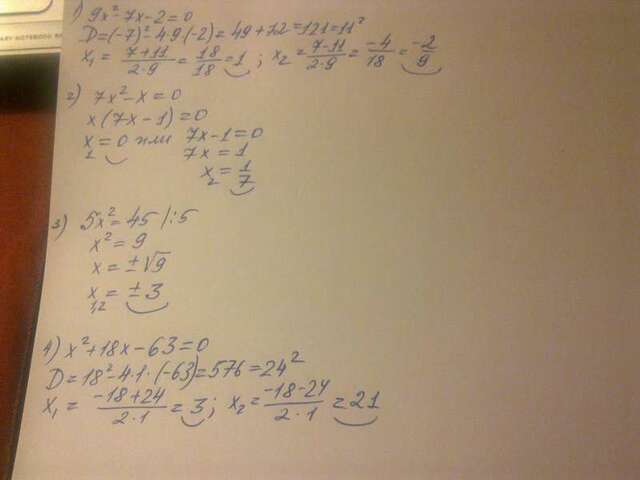 ARY-NOTEBOOK
1) 9x²-7x-2=0
D=(-7)²-4·9(-2)=49+72=121=11²
x₁ = (7+11)/(2·9) = 18/18 = 1 ; x₂ = (7-11)/(2·9) = -4/18 = -2/9
2) 7x²-x=0
x(7x-1)=0
x₁=0 или 7x-1=0
7x=1
x₂=1/7
3) 5x²=45 |:5
x²=9
x=±√9
x₁,₂=±3
4) x²+18x-63=0
D=18²-4·1·(-63)=576=24²
x₁ = (-18+24)/(2·1) = 3; x₂ = (-18-24)/(2·1) = 21